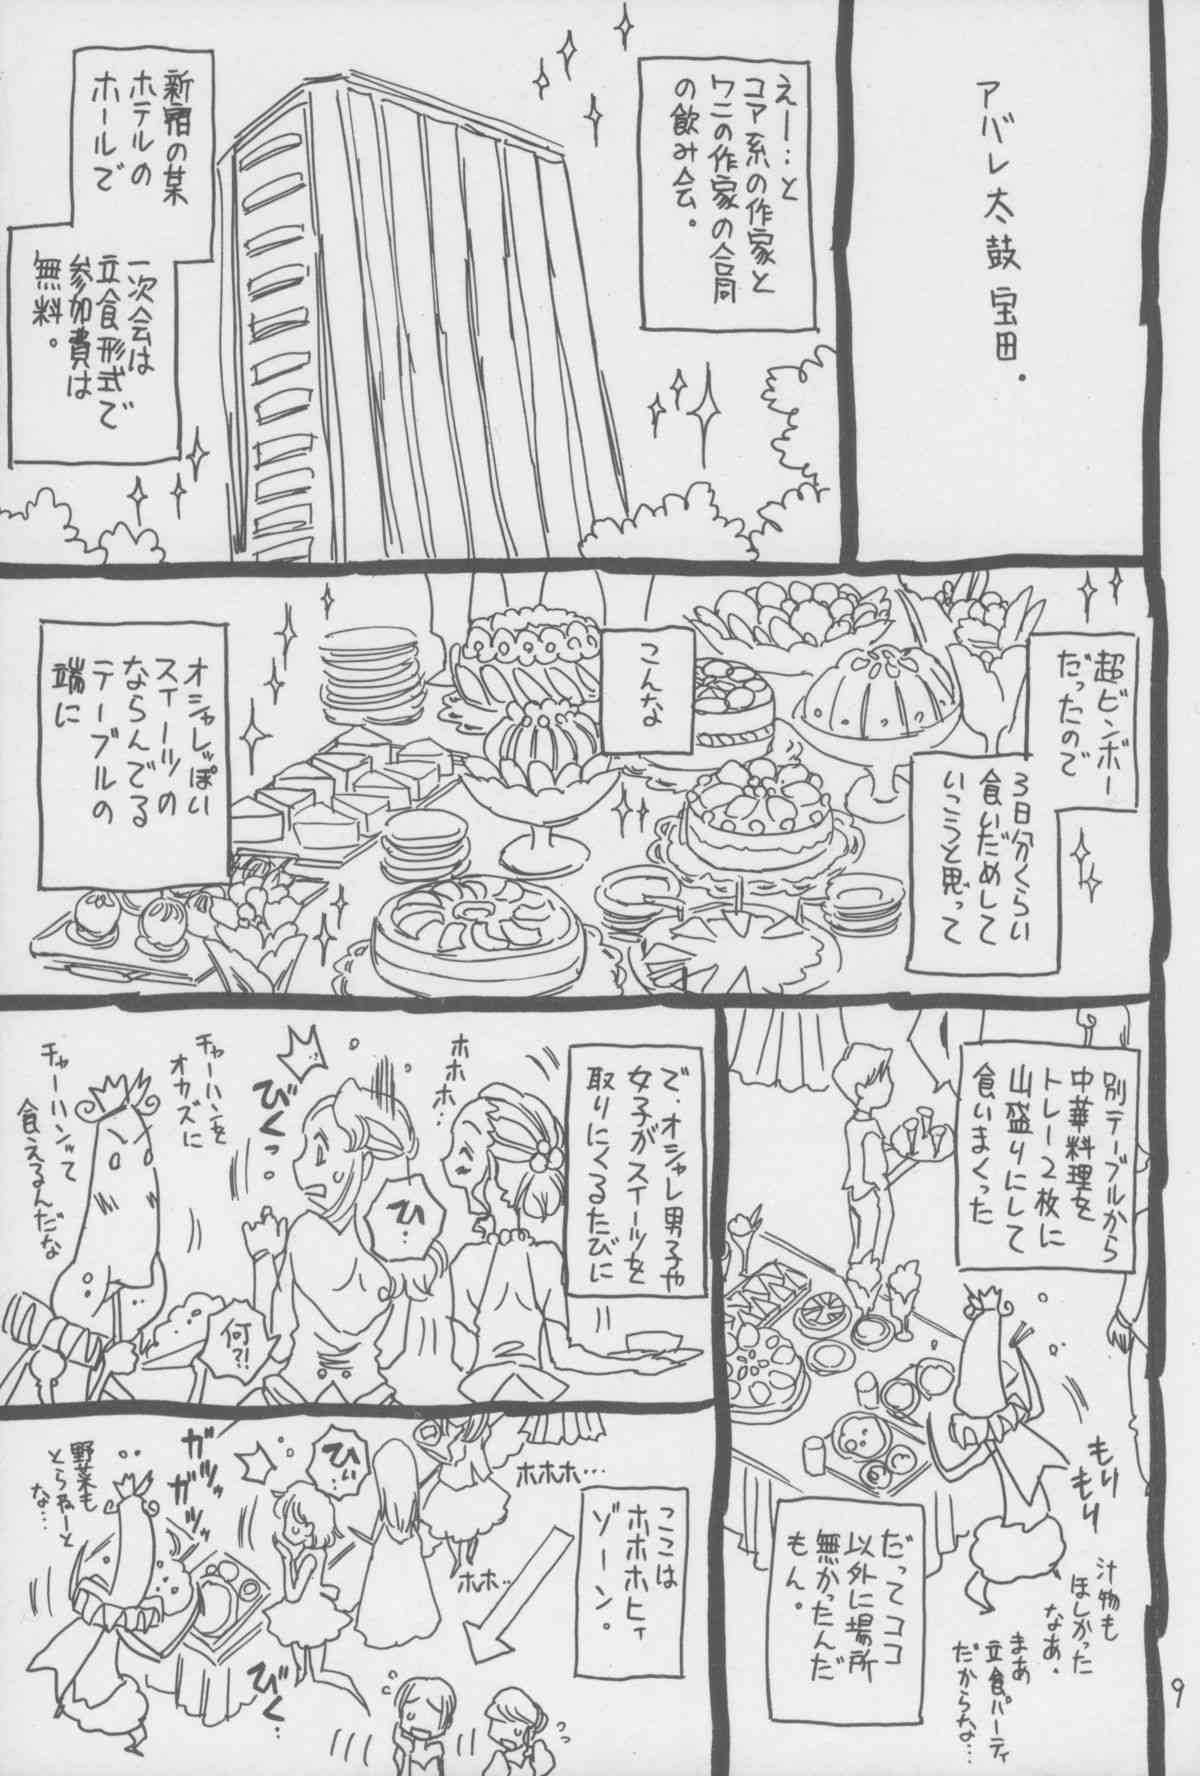 アバレ太鼓 宝田.
えー…と
コア系の作家と
ワニの作家の合同
の飲み会。
新宿の某
ホテルの
ホールで
一次会は
立食形式で
参加費は
無料。
超ビンボー
だったので
3日分くらい
食いだめして
いこうと思って
こんな
オシャレっぽい
スイーツの
ならんでる
テーブルの
端に
別テーブルから
中華料理を
トレー2枚に
山盛りにして
食いまくった
もりもり
汁物も
ほしかった
なあ。
まあ
立食パーティ
だからな…
だってココ
以外に場所
無かったんだ
もん。
で、オシャレ男子や
女子がスイーツを
取りにくるたびに
ホホホ…
ひ…
びくっ
何?!
チャーハンを
オカズに
チャーハンって
食えるんだな
ここは
ホホホヒィ
ゾーン。
ホホホ…
ホホ…
ひぃ
ガッ
ガッ
びく…
野菜も
とらねーと
な…
9